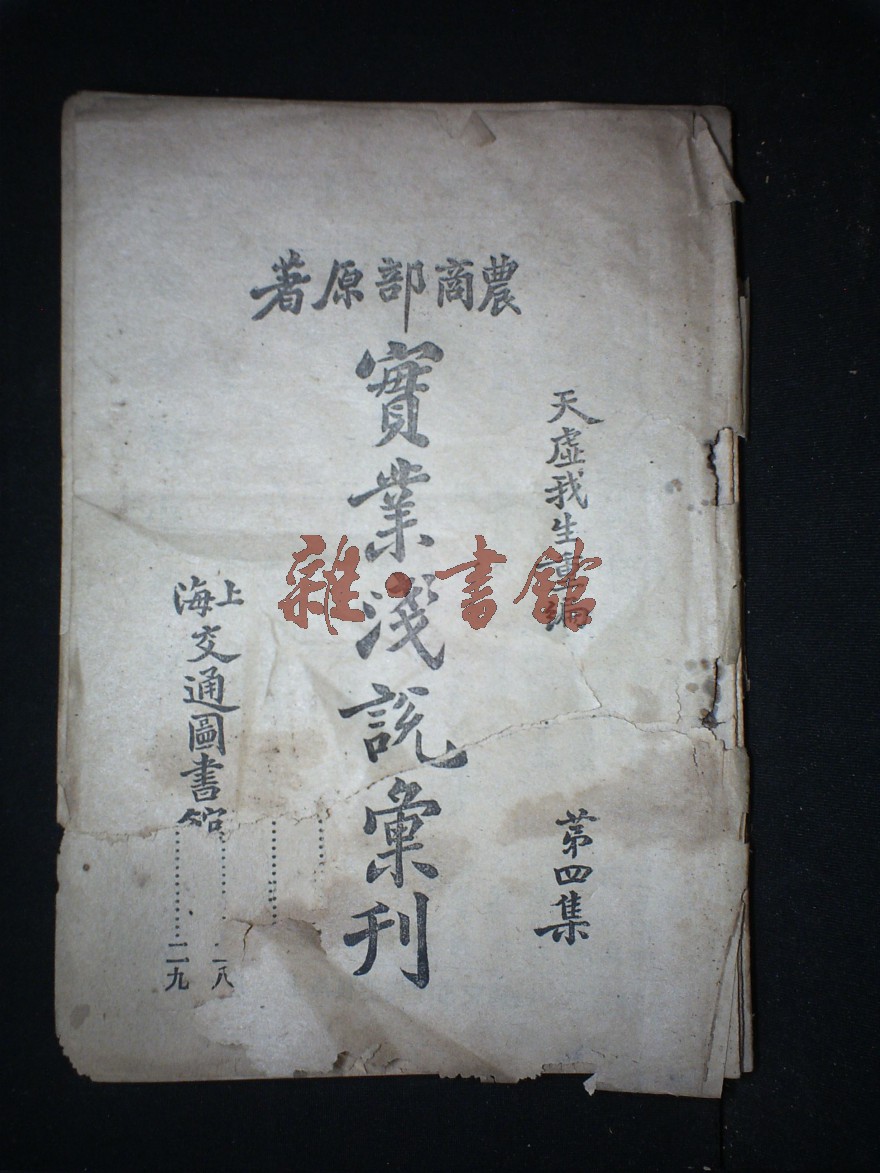 農商部原著
天虛我生重編
第四集
實業淺説彙刊
上海交通圖書館
二八
二九
雜·書館